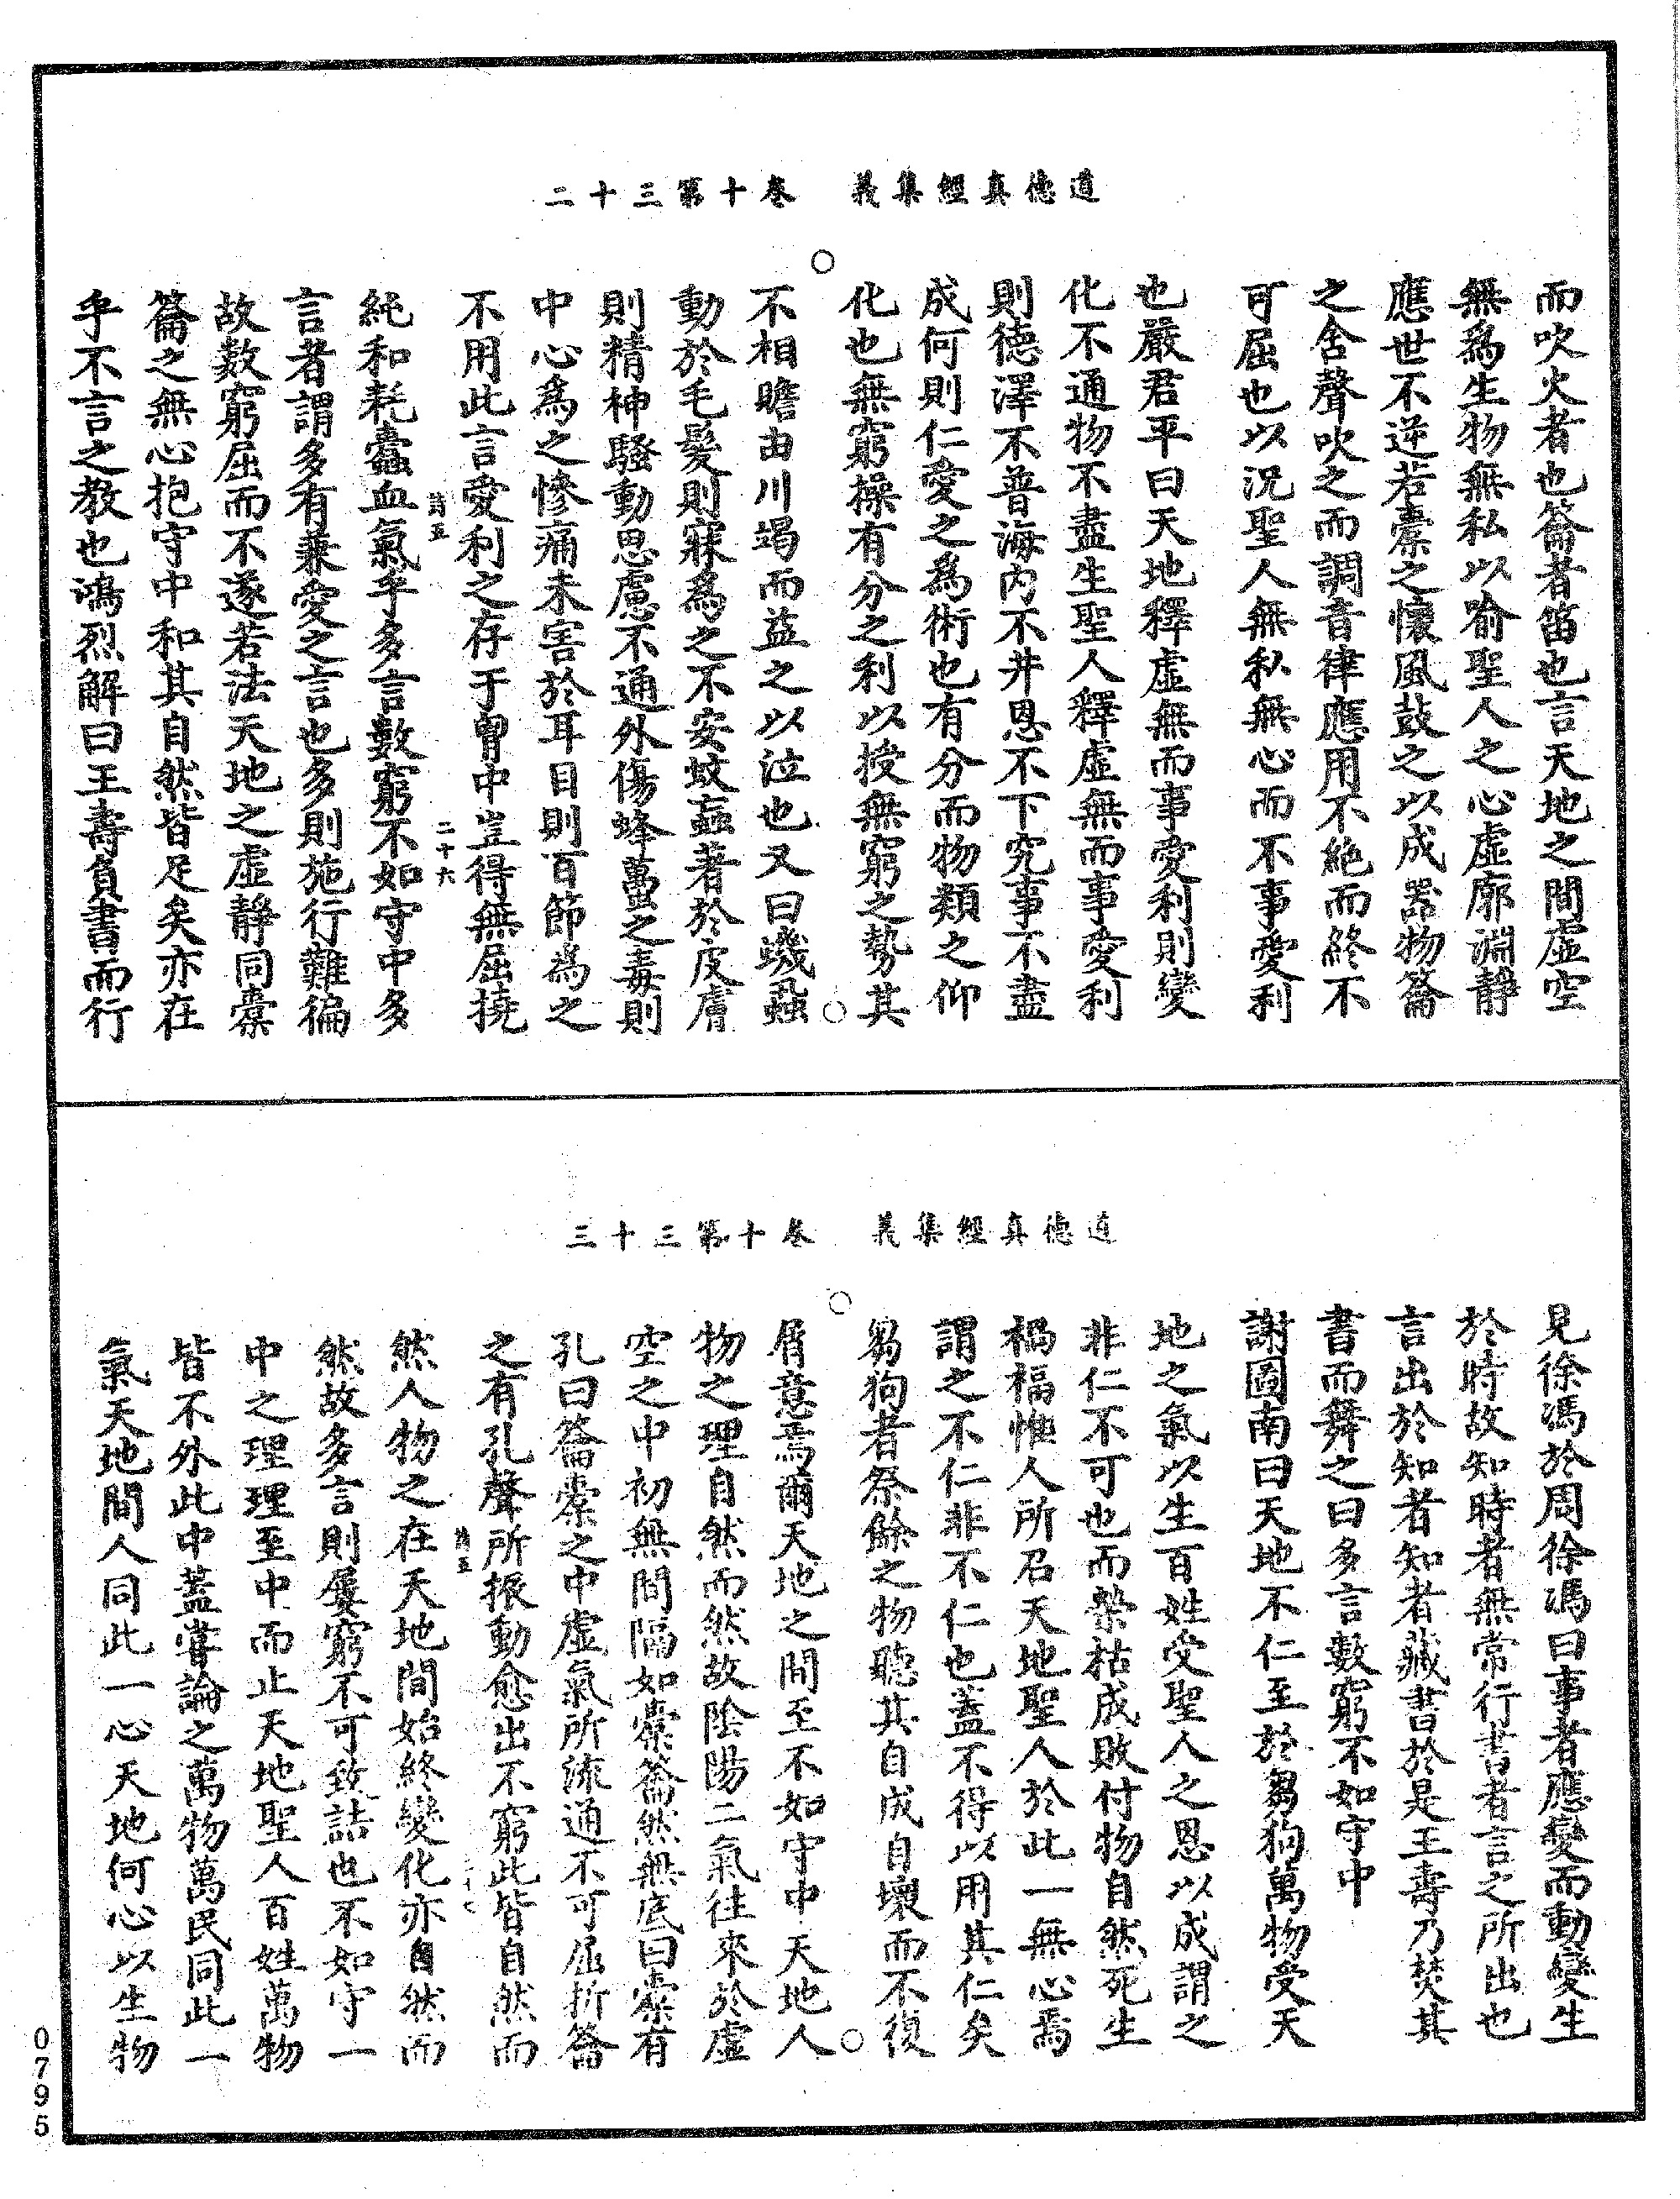 道德真經集義　卷十第三十二
而吹火者也籥者笛也言天地之間虛空
無爲生物無私以喻聖人之心虛廓淵靜
應世不逆若橐之懷風鼓之以成器物籥
之含聲吹之而調音律應用不絶而終不
可屈也以況聖人無私無心而不事愛利
也嚴君平曰天地釋虛無而事愛利則變
化不通物不盡生聖人釋虛無而事愛利
則德澤不普海內不并恩不下究事不盡
成何則仁愛之爲術也有分而物類之仰
化也無窮操有分之利以授無窮之勢其
不相贍由川竭而益之以泣也又曰蟣蝨
動於毛髮則寐爲之不安蚊䖟著於皮膚
則精神騷動思慮不通外傷蜂蠆之毒則
中心爲之慘痛未害於耳目則百節爲之
不用此言愛利之存于胷中豈得無屈撓
詩五　二十六
純和耗蠹血氣乎多言數窮不如守中多
言者謂多有兼愛之言也多則施行難徧
故數窮屈而不遂若法天地之虛靜同橐
籥之無心抱守中和其自然皆足矣亦在
乎不言之教也鴻烈解曰王壽負書而行
道德真經集義　卷十第三十三
見徐馮於周徐馮曰事者應變而動變生
於時故知時者無常行書者言之所出也
言出於知者知者藏書於是王壽乃焚其
書而舞之曰多言數窮不如守中
謝圖南曰天地不仁至於芻狗萬物受天
地之氣以生百姓受聖人之恩以成謂之
非仁不可也而榮枯成敗付物自然死生
禍福惟人所召天地聖人於此一無心焉
謂之不仁非不仁也蓋不得以用其仁矣
芻狗者祭餘之物聽其自成自壞而不復
屑意焉爾天地之間至不如守中天地人
物之理自然而然故陰陽二氣往來於虛
空之中初無間隔如橐籥然無底曰橐有
孔曰籥橐之中虛氣所流通不可屈折籥
之有孔聲所振動愈出不窮此皆自然而
詩五
然人物之在天地間始終變化亦自然而
然故多言則屢窮不可致詰也不如守一
中之理理至中而止天地聖人百姓萬物
皆不外此中蓋嘗論之萬物萬民同此一
氣天地間人同此一心天地何心以生物
0795